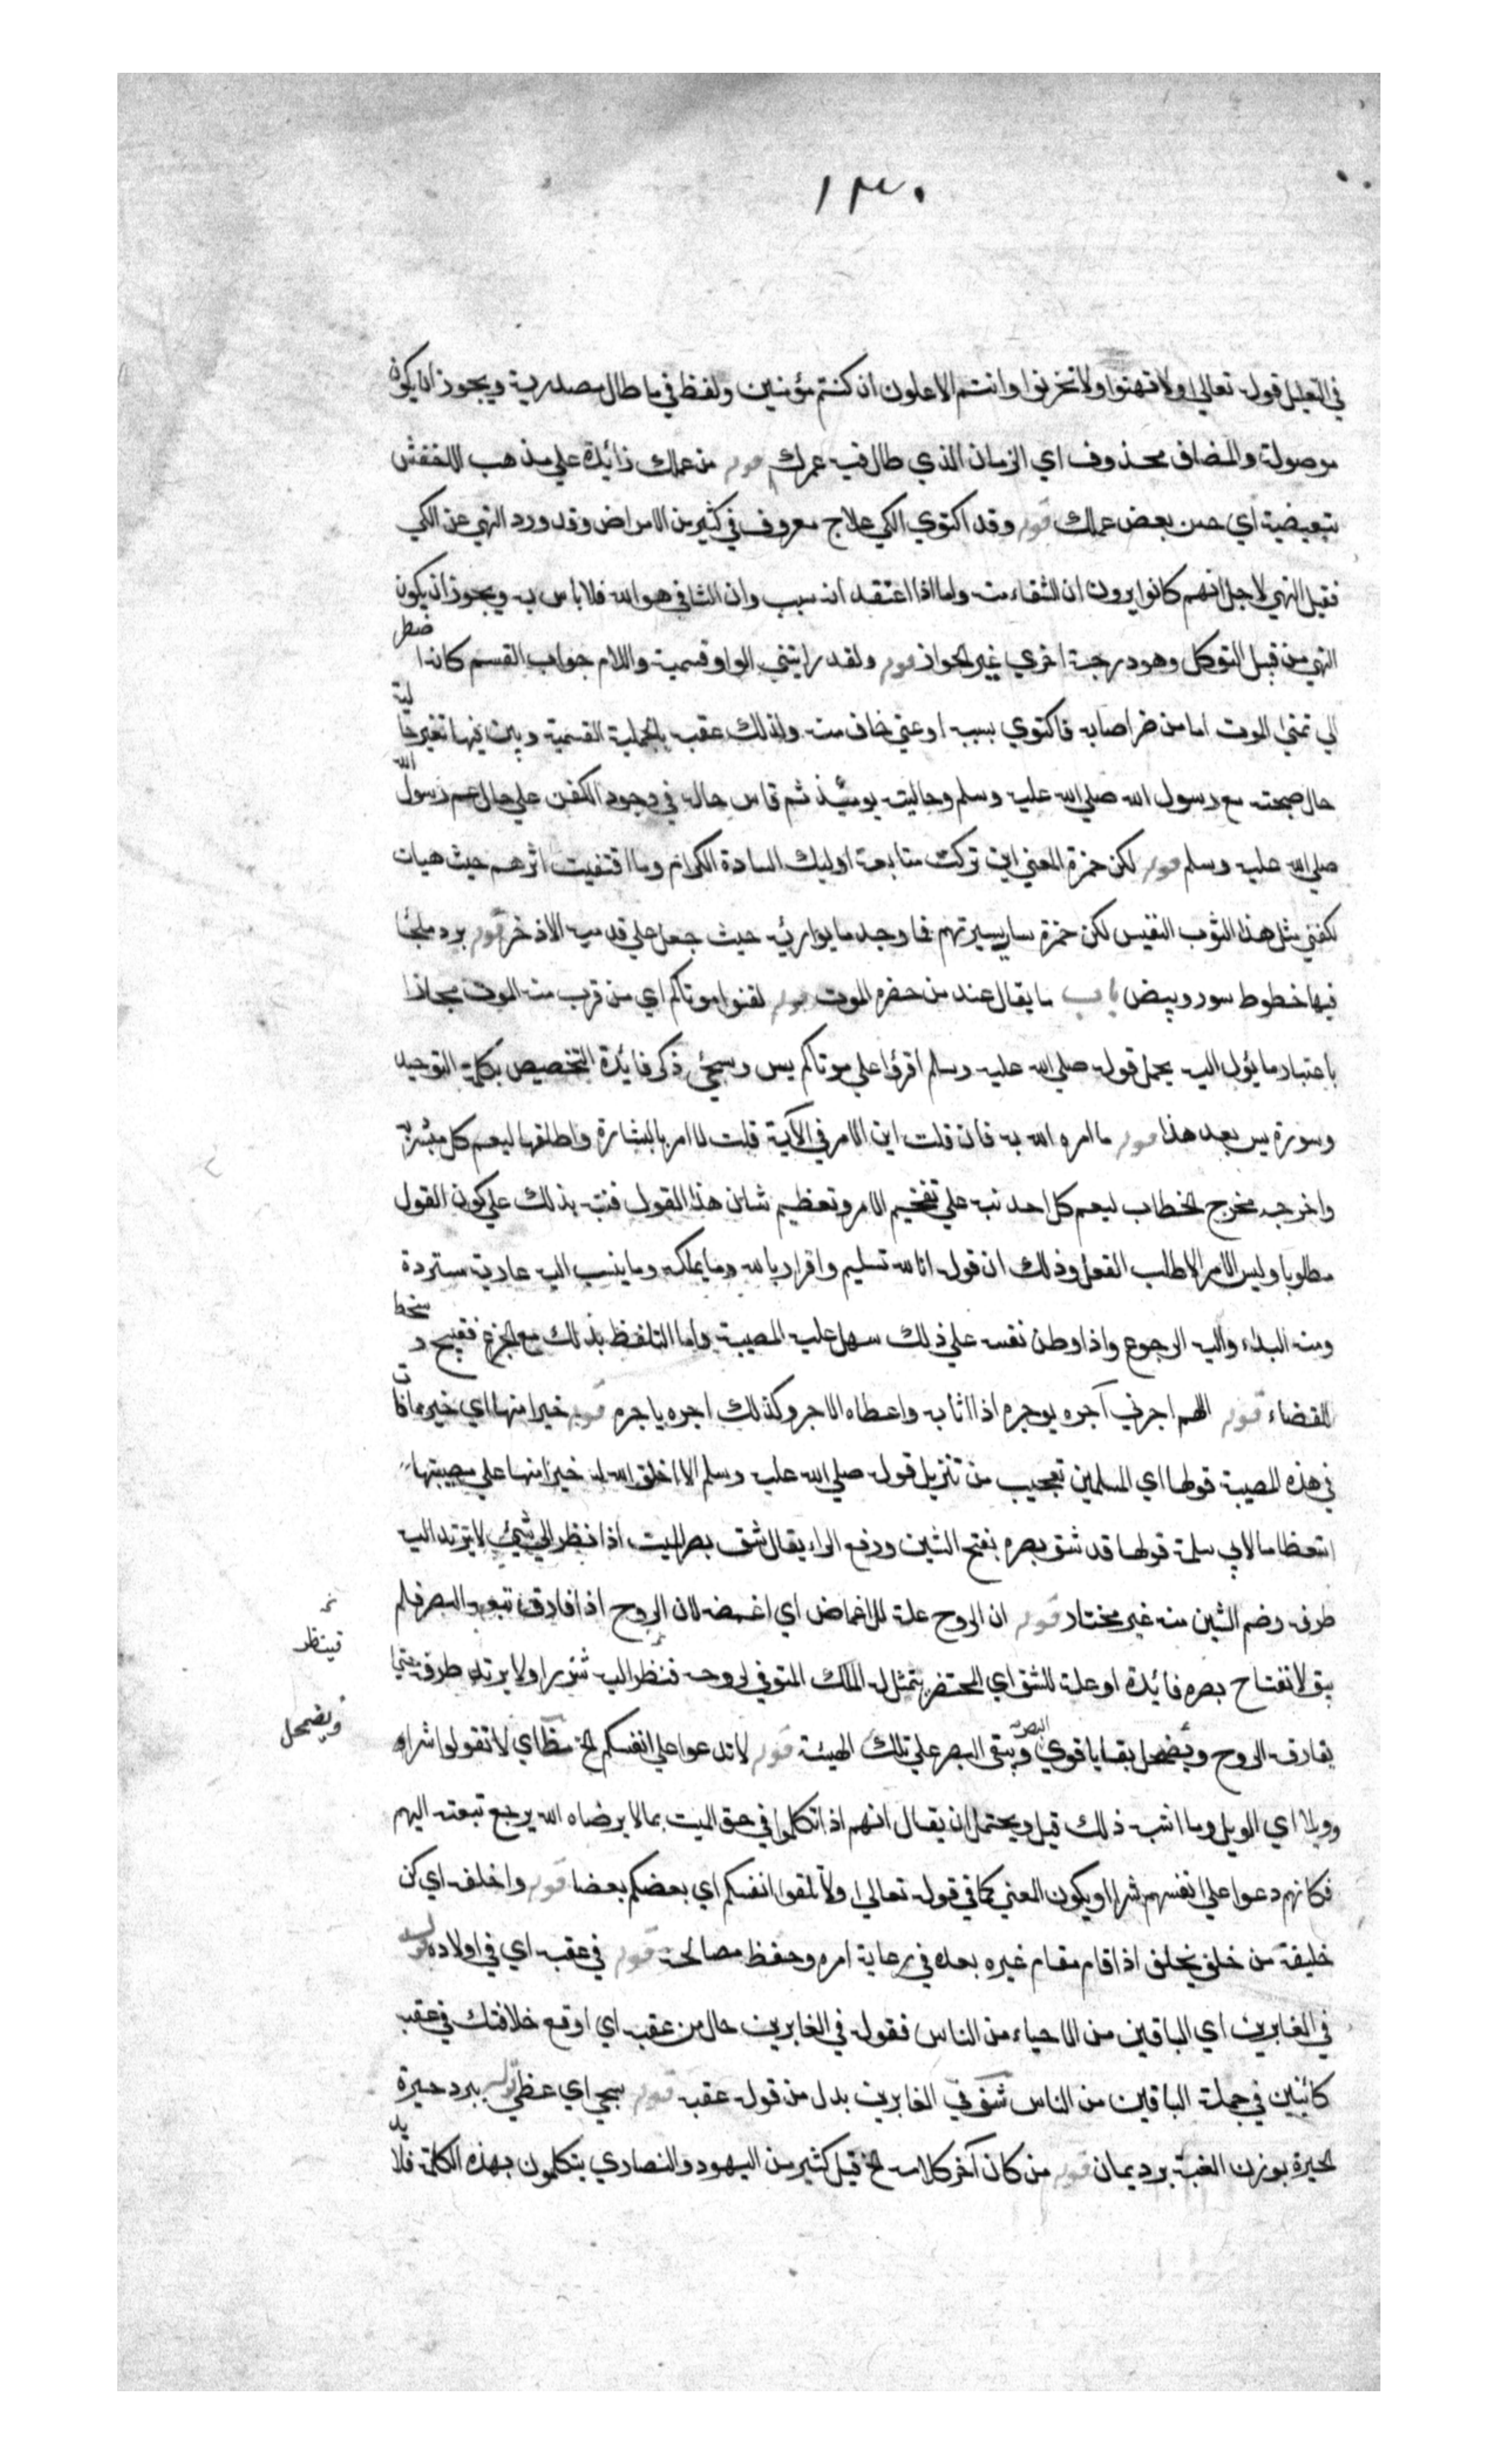 ١٣٠
في التعليل قوله تعالي ولا تهنوا ولا تحزنوا وانتم الاعلون ان كنتم مؤمنين ولفظ في ما طال مصدرية ويجوز ان يكون
موصولة والمضاف محذوف اي الزمان الذي طال فيه عمرك قوله من عملك زائدة علي مذهب الاخفش
تبعيضية اي حسن بعض عملك قوله وقد اكتوي الكي علاج معروف في كثير من الامراض وقد ورد النهي عن الكي
فقيل النهي لاجل انهم كانوا يرون ان الشفاء منه واما اذا اعتقد انه سبب وان الشافي هو الله فلا باس به ويجوز ان يكون
النهي من قبل التوكل وهو درجة اخري غير الجواز قوله ولقد رايتني الواو قسمية واللام جواب القسم كانه ا
ضطر
الي تمني الموت اما من ضر اصابه فاكتوي بسببه او غني خاف منه ولذلك عقبه بالجملة القسمية وبين فيها تغير حا
ليه
حال صحبته مع رسول الله صلي الله عليه وسلم وحاليته يومئذ ثم قاس حاله في وجود الكفن علي حال عم رسول
الله
صلي الله عليه وسلم قوله لكن حمزة المعني اين تركت متابعة اوليك السادة الكرام وما اقتفيت اثرهم حيث هيات
كفني مثل هذا الثوب النفيس لكن حمزة سار بسيرتهم فما وجد ما يواريه حيث جعل علي قدميه الاذخر قوله برد ملحا
فيها خطوط سود وبيض باب ما يقال عند من حضره الموت قوله لقنوا موتاكم اي من قرب منه الموت مجازا
باعتبار ما يؤل اليه يحمل قوله صلي الله عليه وسلم اقرؤا علي موتاكم يس وسيجئ ذكر فائدة التخصيص بكلمة التوحيد
وسورة يس بعد هذا قوله ما امره الله به فان قلت اين الامر في الآية قلت لما امر بالبشارة واطلقها ليعم كل مبشر به
واخرجه مخرج الخطاب ليعم كل احد نبه علي تفخيم الامر وتعظيم شان هذا القول فنبه بذلك علي كون القول
مطلوبا وليس الامر الا طلب الفعل وذلك ان قوله انا لله تسليم واقرار بانه وما يملكه وما ينسب اليه عارية مستردة
ومنه البداء واليه الرجوع واذا وطن نفسه علي ذلك سهل عليه المصيبة واما التلفظ بذلك مع الجزع فقبيح و
سخط
للقضاء قوله اللهم اجرني آجره يوجره اذا اثابه واعطاه الاجر وكذلك اجره ياجره قوله خيرا منها اي خير مما فا
ت
في هذه المصيبة قولها اي المسلمين تعجيب من تنزيل قوله صلي الله عليه وسلم الا اخلف الله له خيرا منها علي مصيبتها
استعظاما لابي سلمة قولها قد شق بصره بفتح الشين ورفع الراء يقال شق بصر الميت اذا نظر الي شيئ لا يرتد اليه
طرفه وضم الشين منه غير مختار قوله ان الروح علة للاغماض اي اغمضه لان الروح اذا فارق تبعه البصر فلم
يبق لانفتاح بصره فائدة او علة للشق اي المحتضر يتمثل له الملك المتوفي لروحه فنظر اليه شزرا ولا يرتد طرفه حتي
فينظر
يفارقه الروح ويضمحل بقايا قوي البصر ويبقي البصر علي تلك الهيئة قوله لا تدعوا علي انفسكم الخ مظ اي لا تقولوا شرا و
ويضمحل
وويلا اي الويل وما اشبه ذلك قيل ويحتمل ان يقال انهم اذا تكلموا في حق الميت بما لا يرضاه الله يرجع تبعته اليهم
فكانهم دعوا علي انفسهم شرا او يكون المعني كما في قوله تعالي ولا تقتلوا انفسكم اي بعضكم بعضا قوله واخلفه اي كن
خليفة من خلف يخلف اذا قام مقام غيره بعده في رعاية امره وحفظ مصالحه قوله في عقبه اي في اولاده قوله
في الغابرين اي الباقين من الاحياء من الناس فقوله في الغابرين حال من عقبه اي اوقع خلافتك في عقبه
كائنين في جملة الباقين من الناس شق في الغابرين بدل من قوله عقبه قوله سجي اي غطي قوله ببرد حبرة
الحبرة بوزن العنبة برد يمان قوله من كان آخر كلامه الخ قيل كثير من اليهود والنصاري يتكلمون بهذه الكلمة فلا
بد